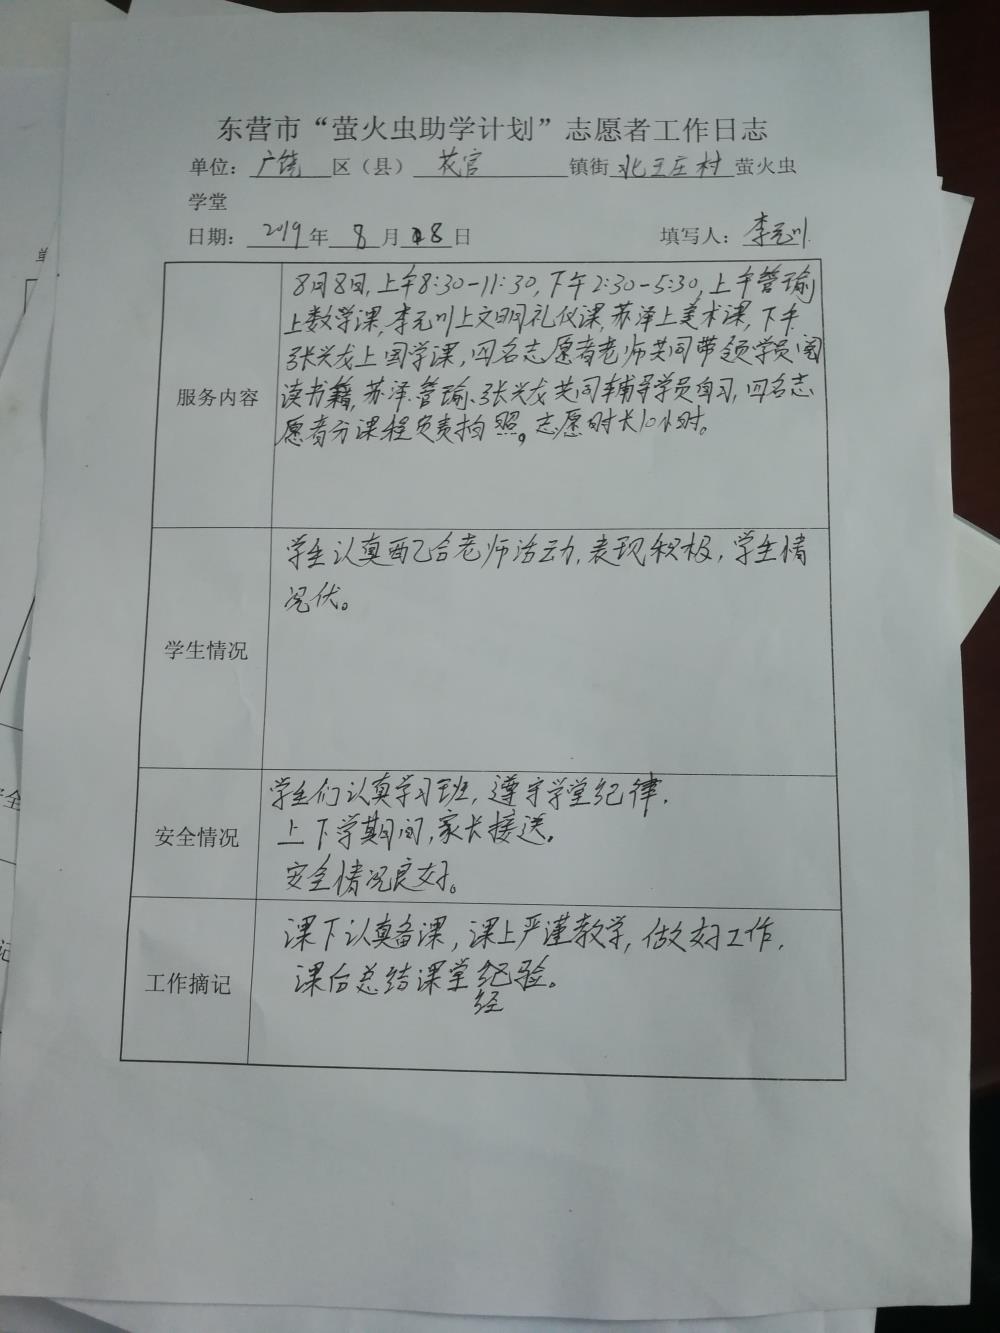 东营市“萤火虫助学计划”志愿者工作日志
单位：广饶区（县）花官镇街北王庄村萤火虫
学堂
日期：2019年8月8日 填写人：李元川
8月8日，上午8:30-11:30，下午2:30-5:30，上午管瑜
上数学课，李元川上文明礼仪课，苏泽上美术课，下午
张兴龙上国学课，四名志愿者老师共同带领学员阅
服务内容
读书籍，苏泽、管瑜、张兴龙共同辅导学员自习，四名志
愿者分课程负责拍照。志愿时长10小时。
学生认真配合老师活动，表现积极，学生情
况优。
学生情况
学生们认真学习班，遵守学堂纪律．
上下学期间，家长接送。
安全情况
安全情况良好。
课下认真备课，课上严谨教学，做好工作．
课后总结课堂纪验。
经
工作摘记